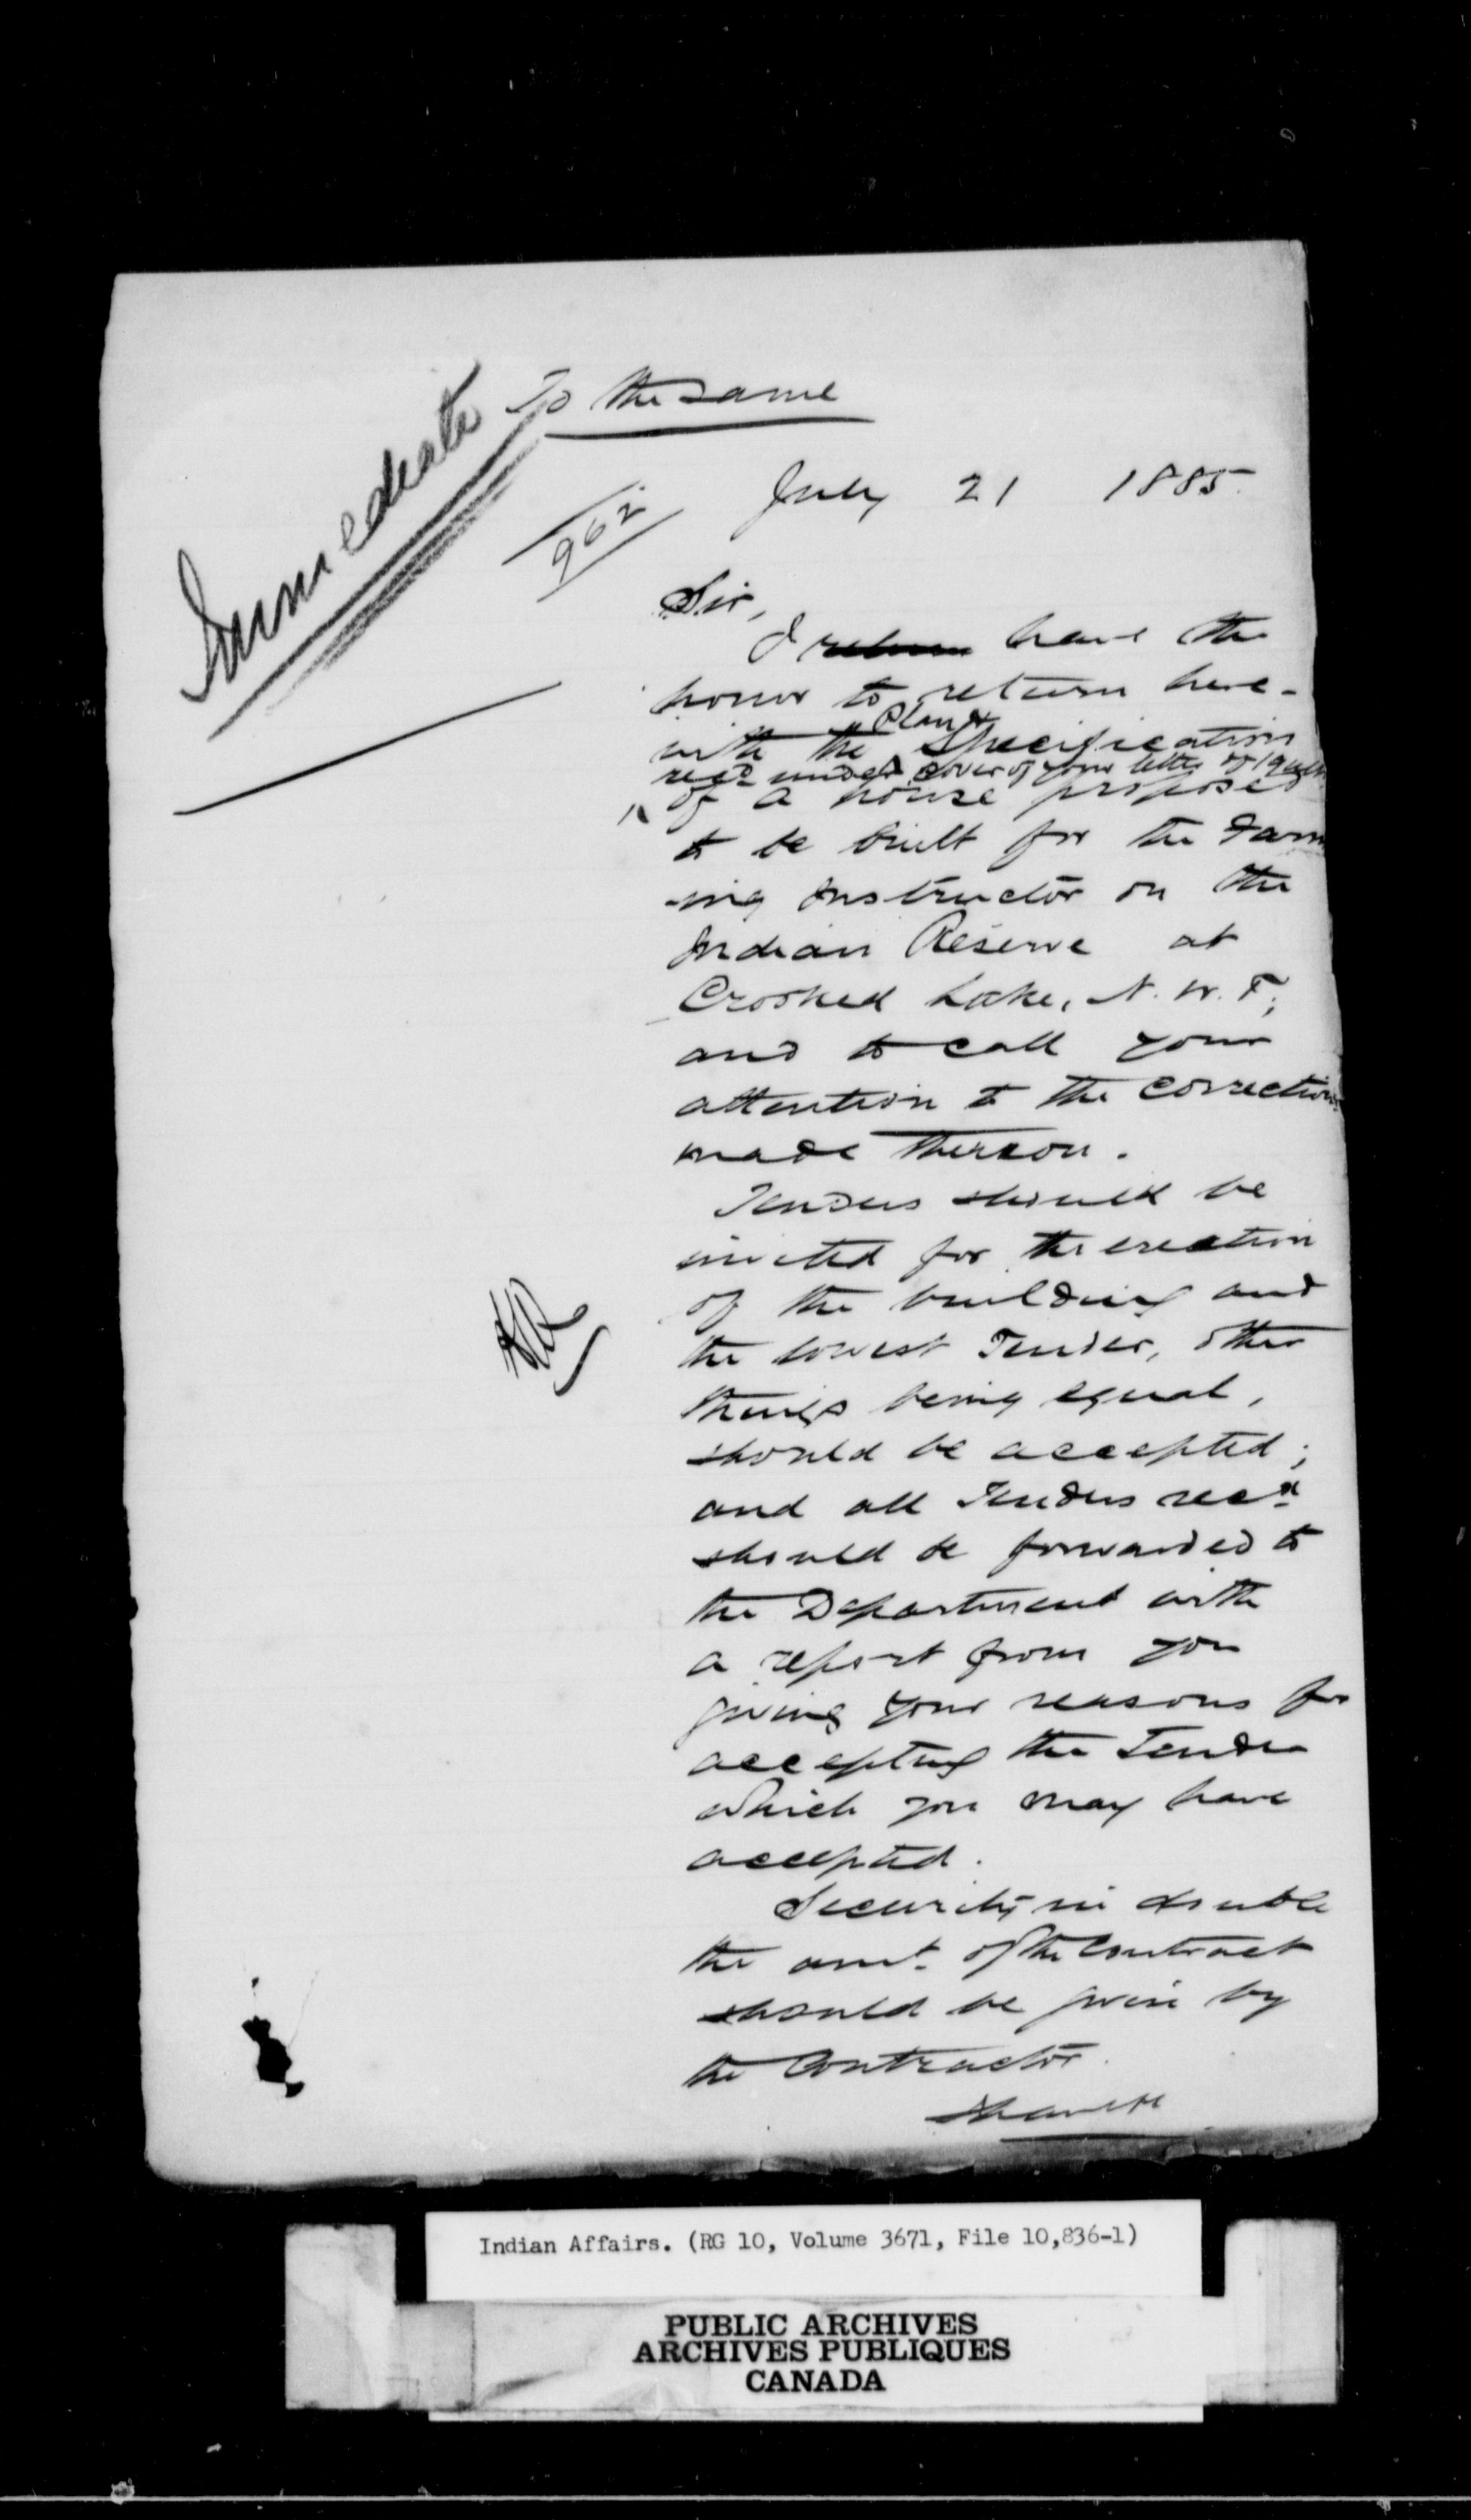 Immediate
To the same
962
July 21 1885.
Sir,
I return have the
honor to return here-
with the Plan & Specification
recd under cover of your letter of 19
of a house proposed
to be built for the Farm
-ing Instructor on the
Indian Reserve at
Crooked Lake, N. W. T.,
and to call your
attention to the corrections
made thereon.
Tenders should be
invited for the erection
of the building and
the lowest Tender, other
things being equal,
should be accepted;
and all Tenders recd
should be forwarded to
the Department with
a report from you
giving your reasons for
accepting the Tender
which you may have
accepted.
Security in double
the amt. of the Contract
should be given by
the Contractor.
Indian Affairs. (RG 10, Volume 3671, File 10,836-1)
PUBLIC ARCHIVES
ARCHIVES PUBLIQUES
CANADA